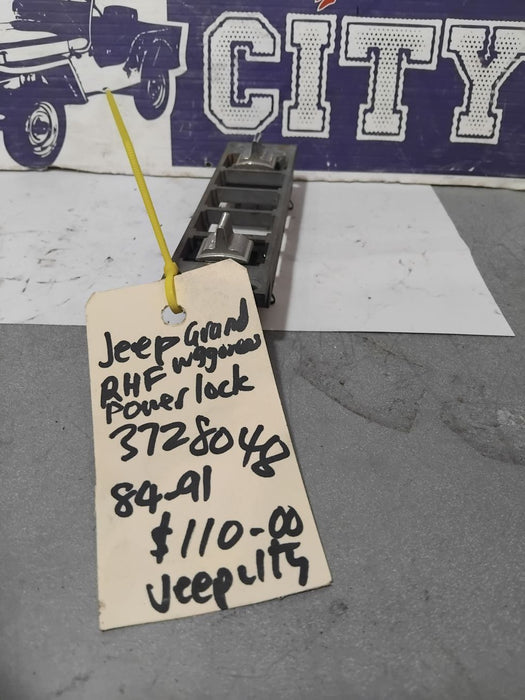 CITY
Jeep Grand
RHF wagoneer
Power lock
3728048
84-91
$110-00
Jeepcity